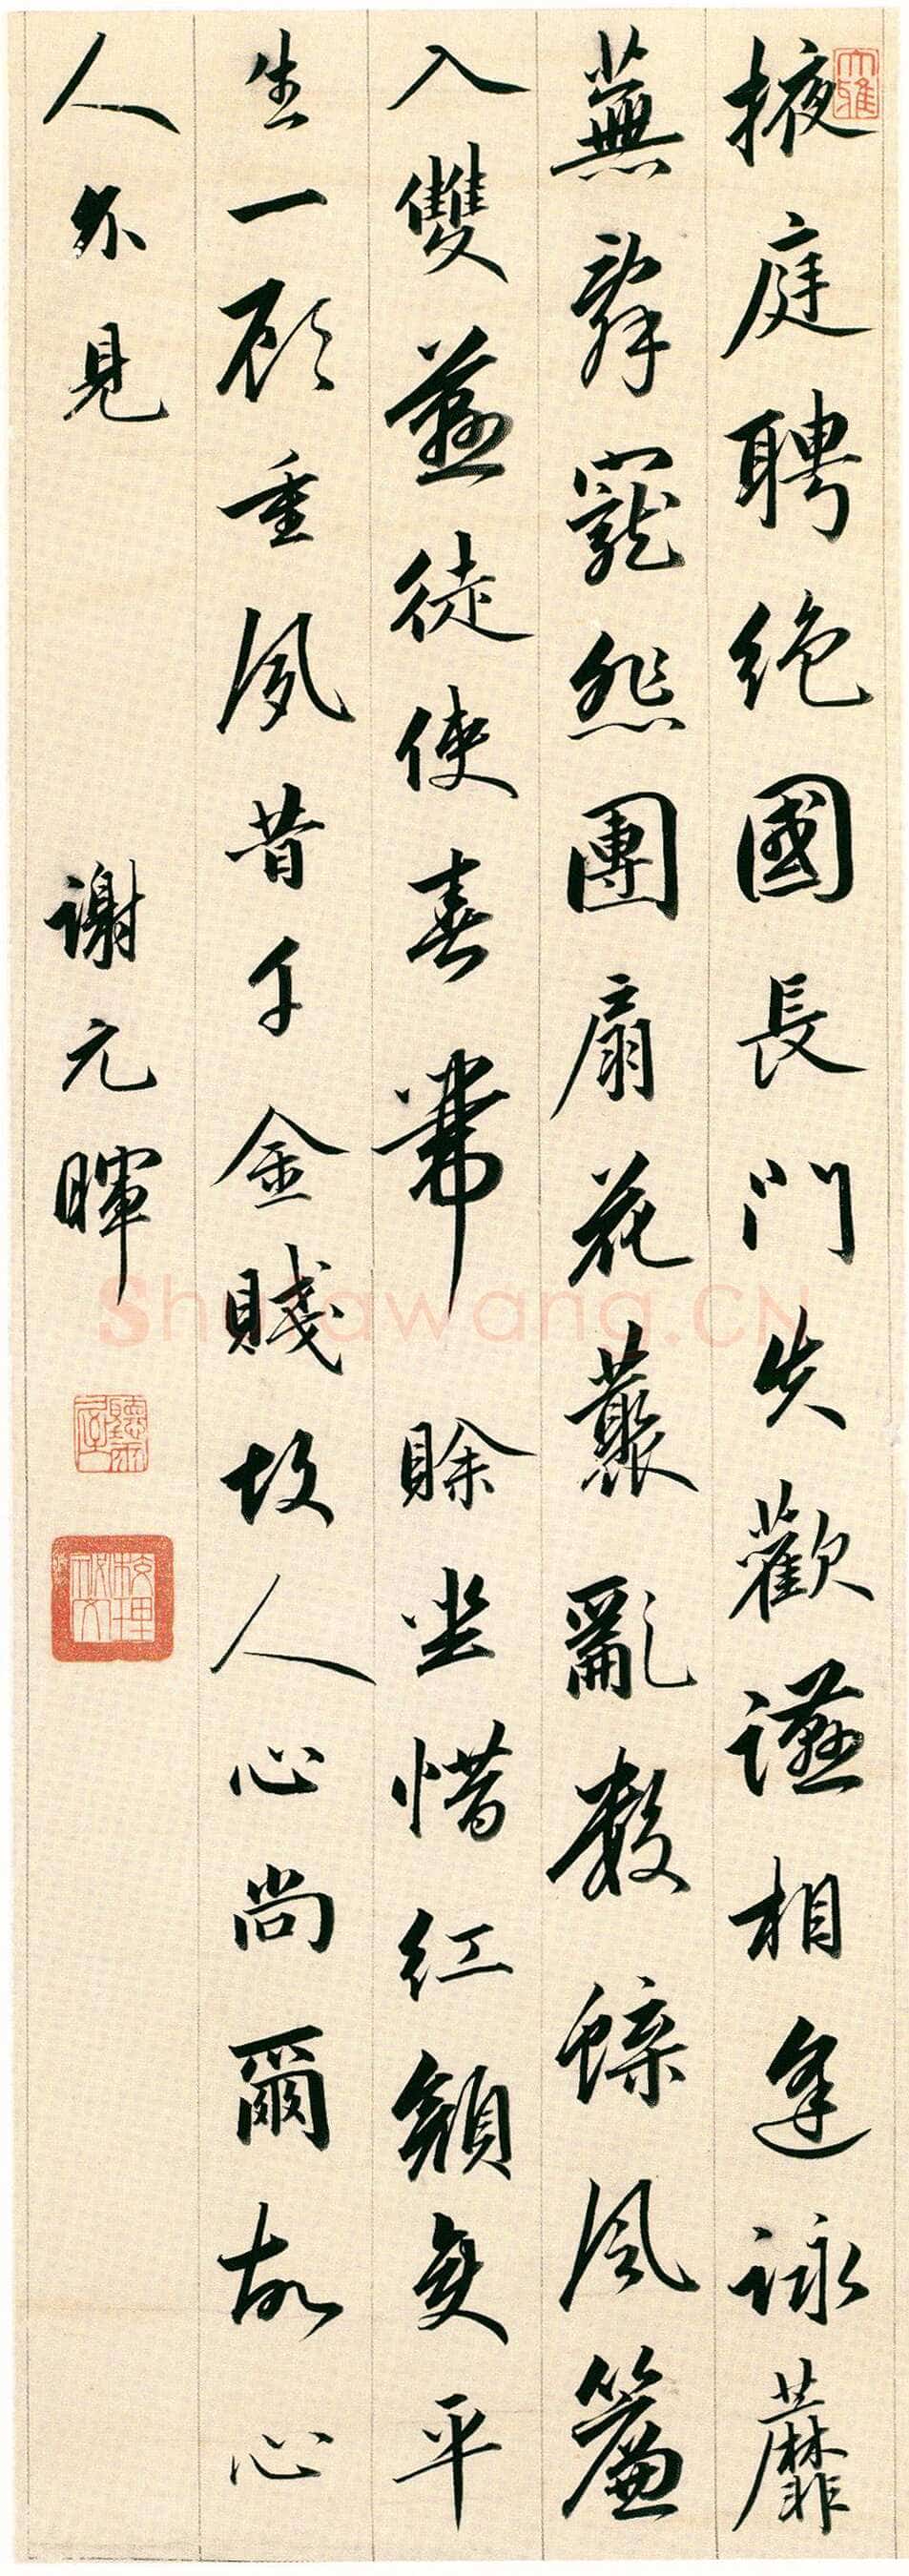 大雅
掖庭聘絕國長門失歡讌相逢詠蘼
蕪辭寵怨團扇花藂亂數蝶風簾
入雙燕徒使春帶賒坐惜紅顏變平
生一顧重夙昔千金賤故人心尚爾故心
人不見
謝元暉
Shufawang.CN